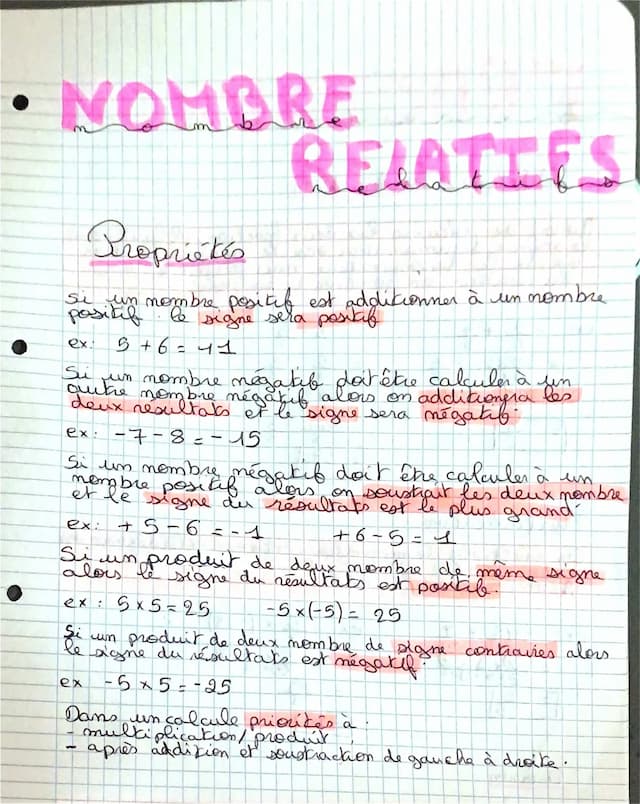 NOMBRE
nombre
RELATIFS
relatifs
Propriétés
Si un nombre positif est additionner à un nombre
positif le signe sera positif
ex: 5 + 6 = 11
Si un nombre négatif doit être calculer à un
autre nombre négatif alors on additionnera les
deux résultats et le signe sera négatif.
ex: -7-8 = -15
Si un nombre négatif doit être calculer à un
nombre positif alors on soustrait les deux nombre
et le signe du résultats est le plus grand.
ex: +5-6 = -1 +6-5 = 1
Si un produit de deux nombre de même signe
alors le signe du résultats est positif.
ex: 5x5 = 25 -5x(-5) = 25
Si un produit de deux nombre de signe contraires alors
le signe du résultats est négatif.
ex -5x5 = -25
Dans un calcule priorités à :
- multiplication/produit
- après addition et soustraction de gauche à droite.